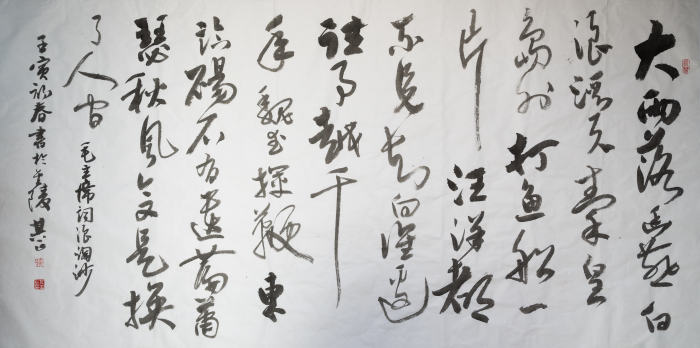 大雨落幽燕白
浪滔天秦皇
岛外打鱼船一
片汪洋都
不见知向谁边
往事越千
年魏武挥鞭东
临碣石有遗篇萧
瑟秋风今又是换
了人间
毛主席词浪淘沙
壬寅初春书於兰陵